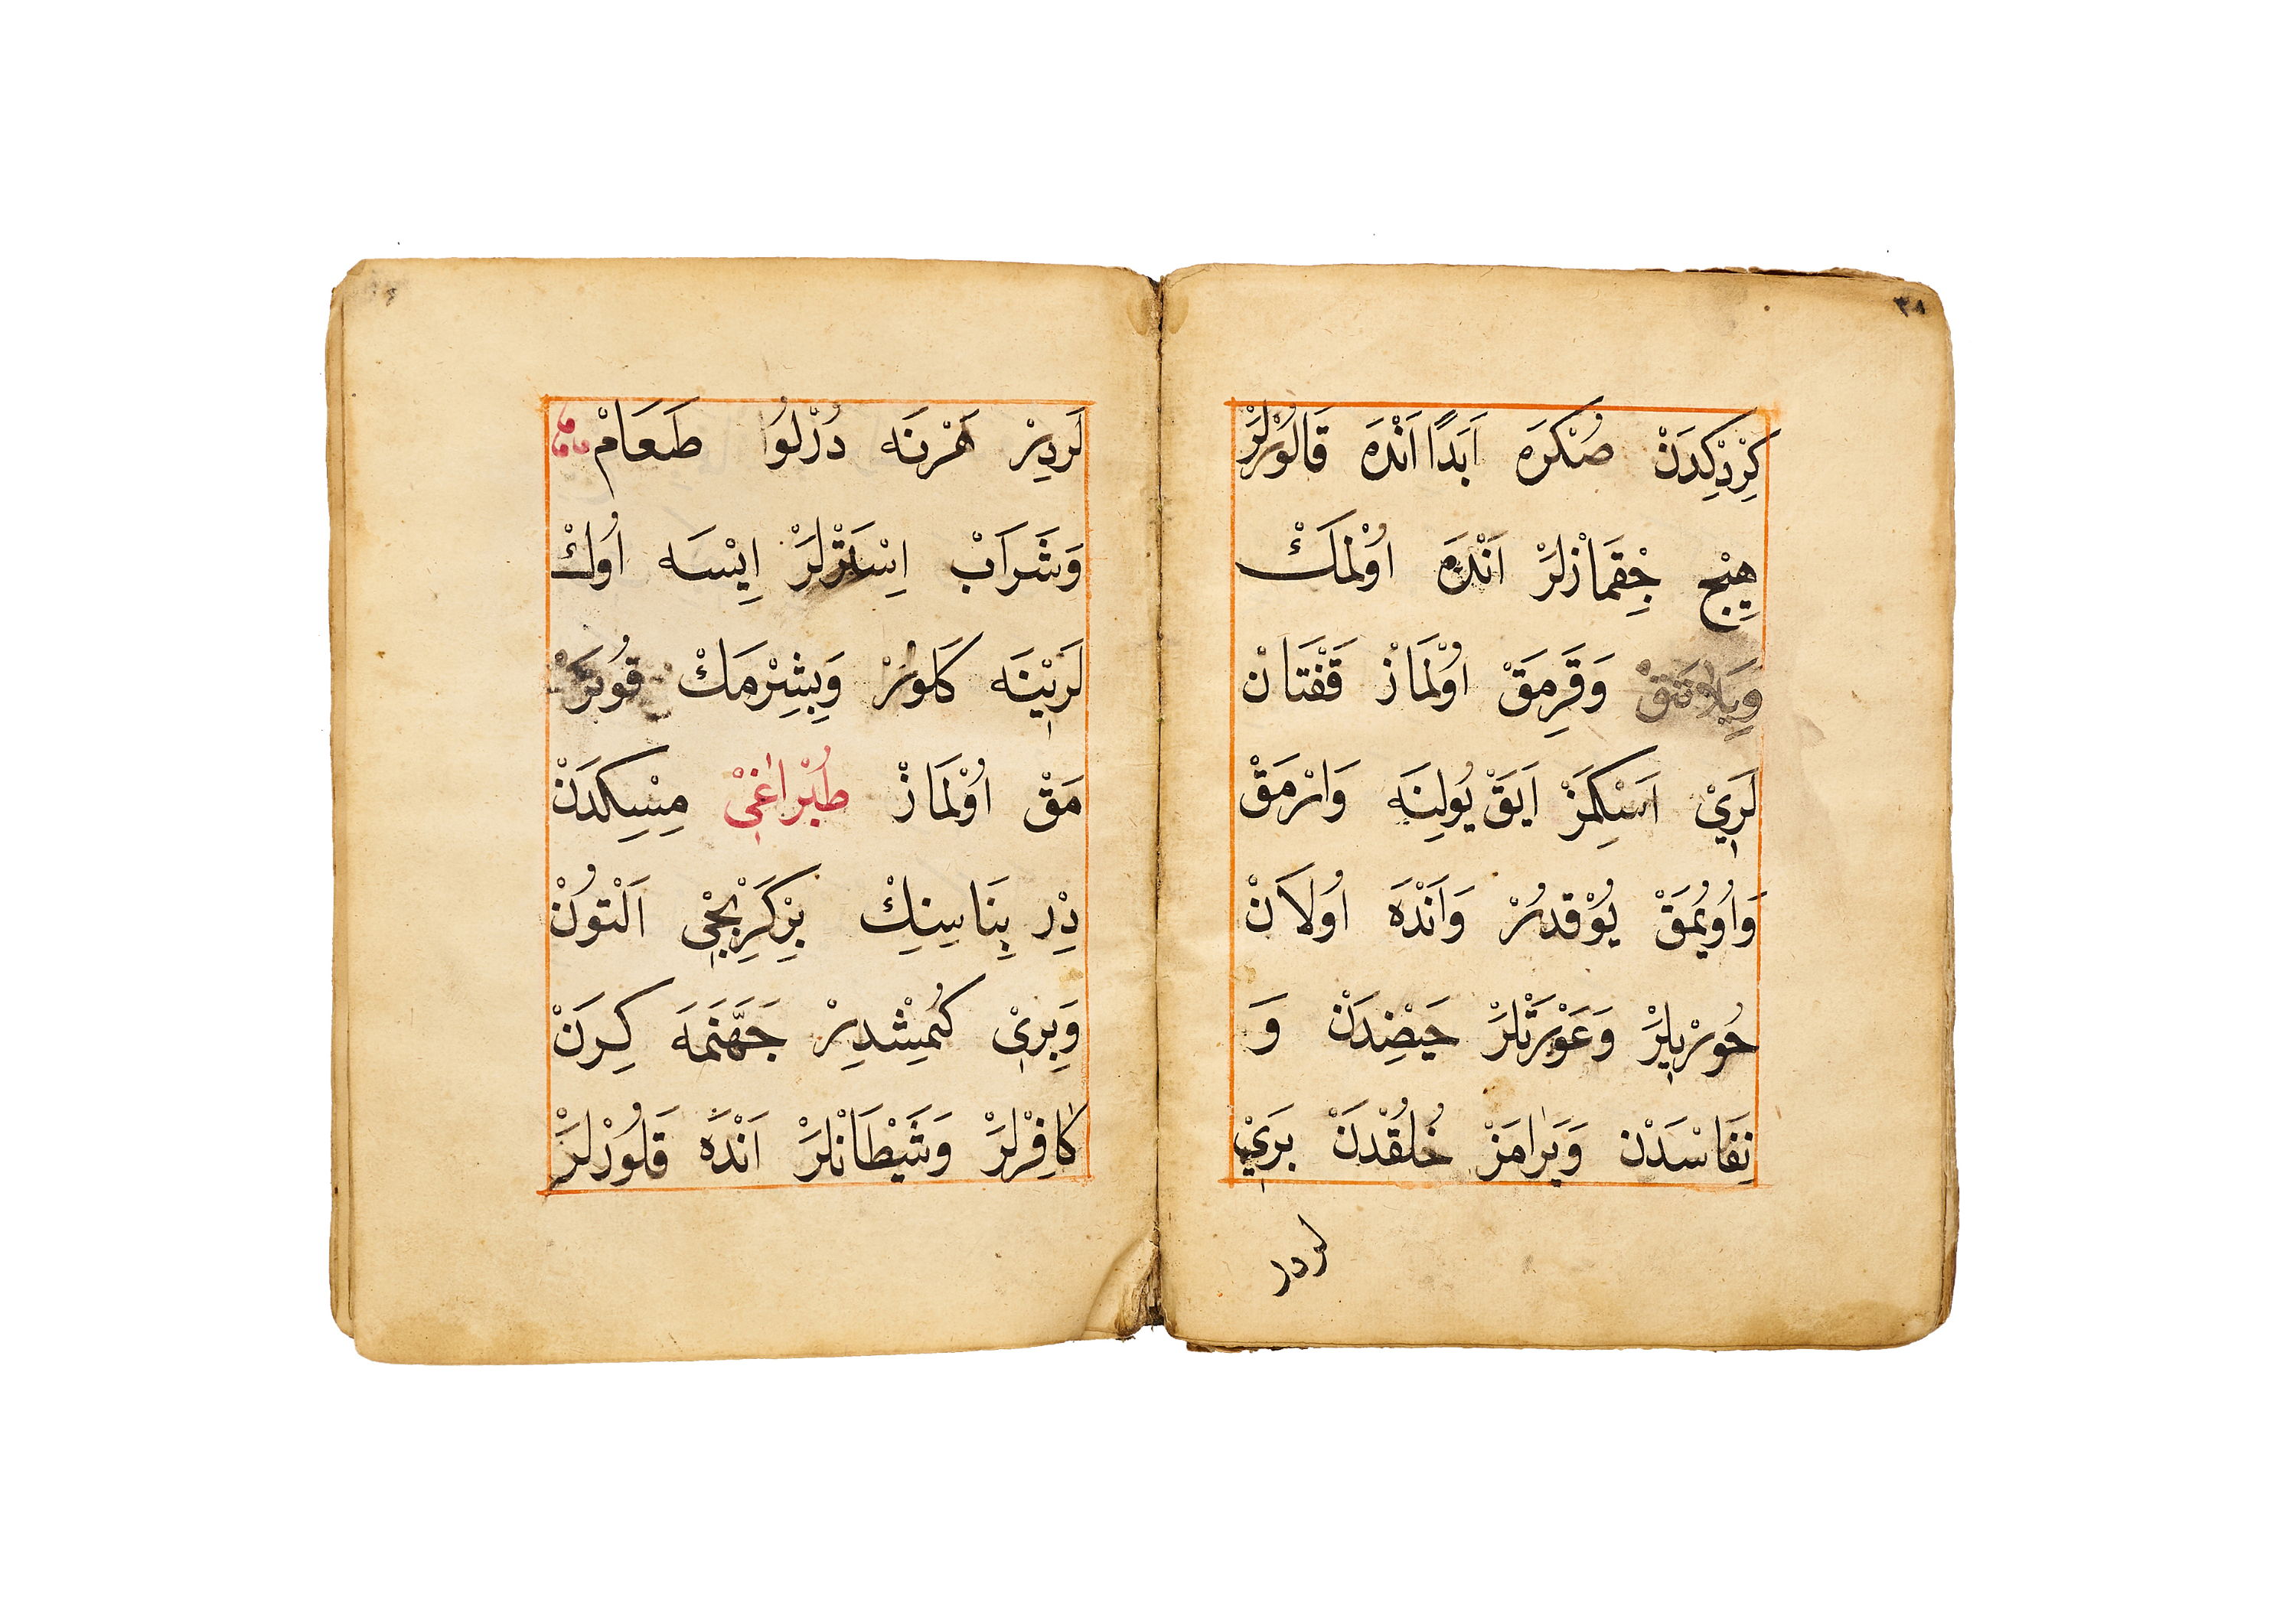 ٣٨
كِرْدِكِدَنْ صُكْرَه اَبَدًا اَنْدَه قَالُوْرْلَرْ
هِيْچ چِقْمَازْلَرْ اَنْدَه اُوْلْمَكْ
وَقَرِمَقْ اُوْلْمَازْ قَفْتَانْ
لَرِيْ اَسْكِمَزْ اَيَقْ يُولِنَه وَارْمَقْ
وَاُويُمَقْ يُوْقْدُرْ وَاَنْدَه اُولَانْ
حُورْيلَرْ وَعَوْرَتْلَرْ حَيْضِدَنْ وَ
نِفَاسْدَنْ وَيَرَامَزْ خُلُقْدَنْ بَرِيْ
لردر
لَرْدِرْ هَرْنَه دُرْلُوا طَعَامْ
وَشَرَابْ اِسْتَرْلَرْ اِيْسَه اُوكْ
لَرِيْنَه كَلُورْ وَپِشِرْمَكْ قُوپَرْ
مَقْ اُوْلْمَازْ طُپْرَاغِيْ مِسْكِدَنْ
دِرْ بِنَاسِنِكْ بِرْكَرْپِجِي اَلْتُونْ
وَبِرِيْ كُمِشْدِرْ جَهَنَّمَه كِرَنْ
كَافِرْلَرْ وَشَيْطَانْلَرْ اَنْدَه قَلُورْلَرْ